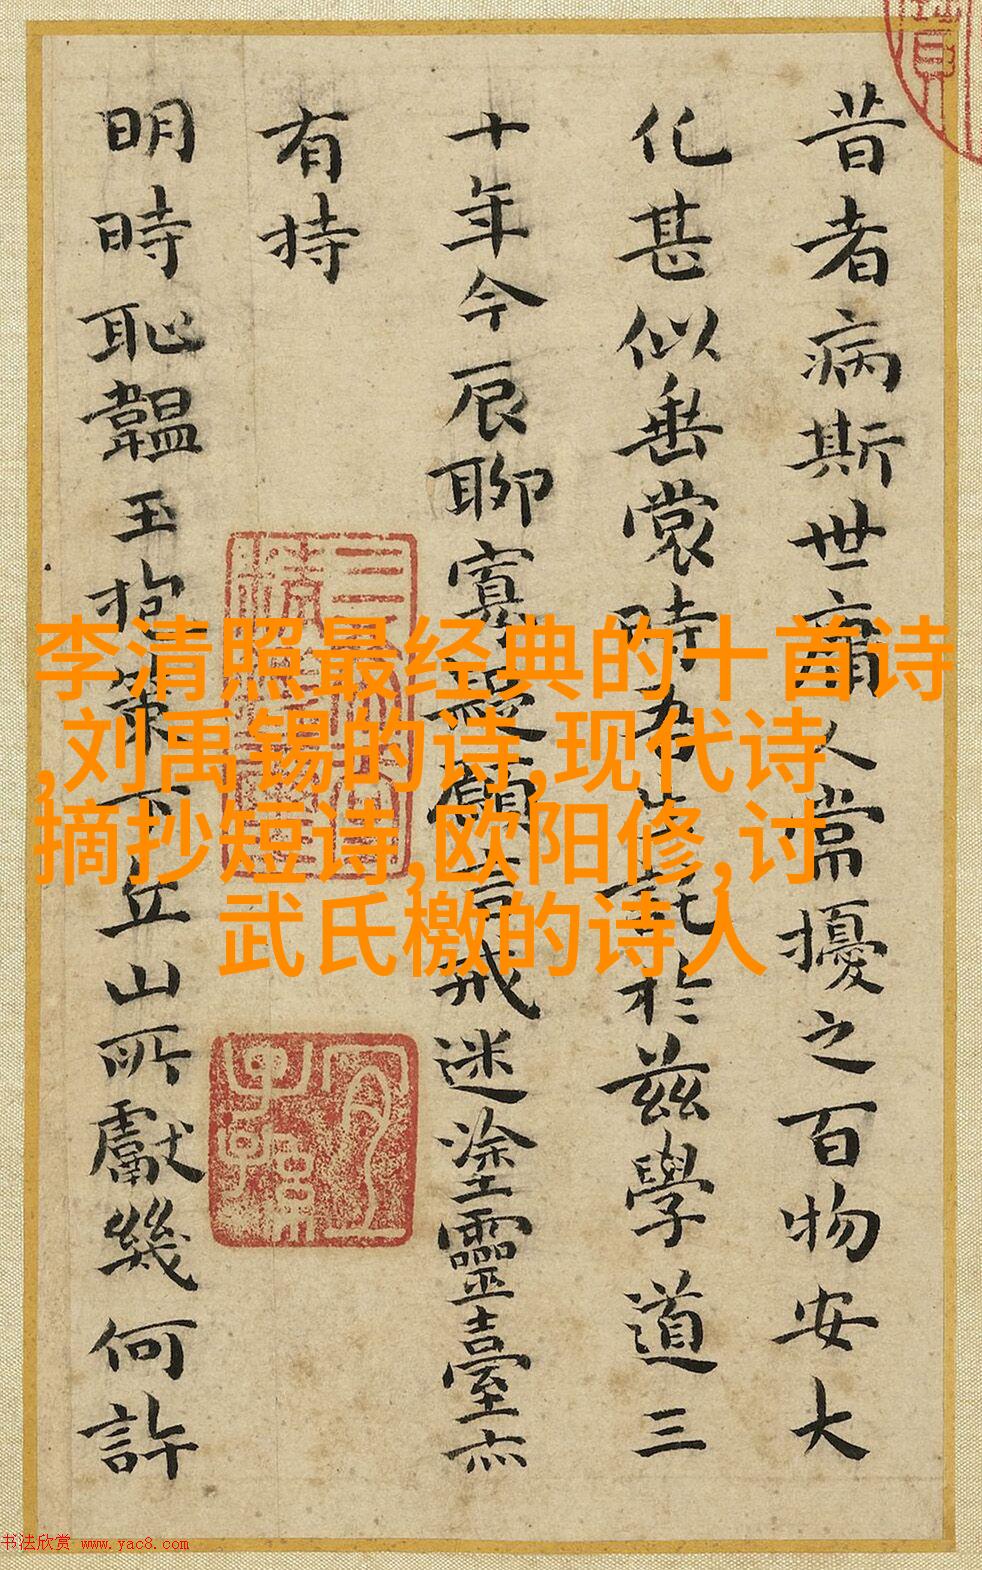 昔者病斯世庸人常擾之百物安大
化甚似垂裳時生託於兹學道三
十年今辰聊寡願言戒迷塗靈臺亦
有持
明時恥韞玉抱策下丘山所獻幾何許
李清照最经典的十首诗
,刘禹锡的诗,现代诗
摘抄短诗,欧阳修,讨
武氏檄的诗人
书法欣赏 www.yac8.com